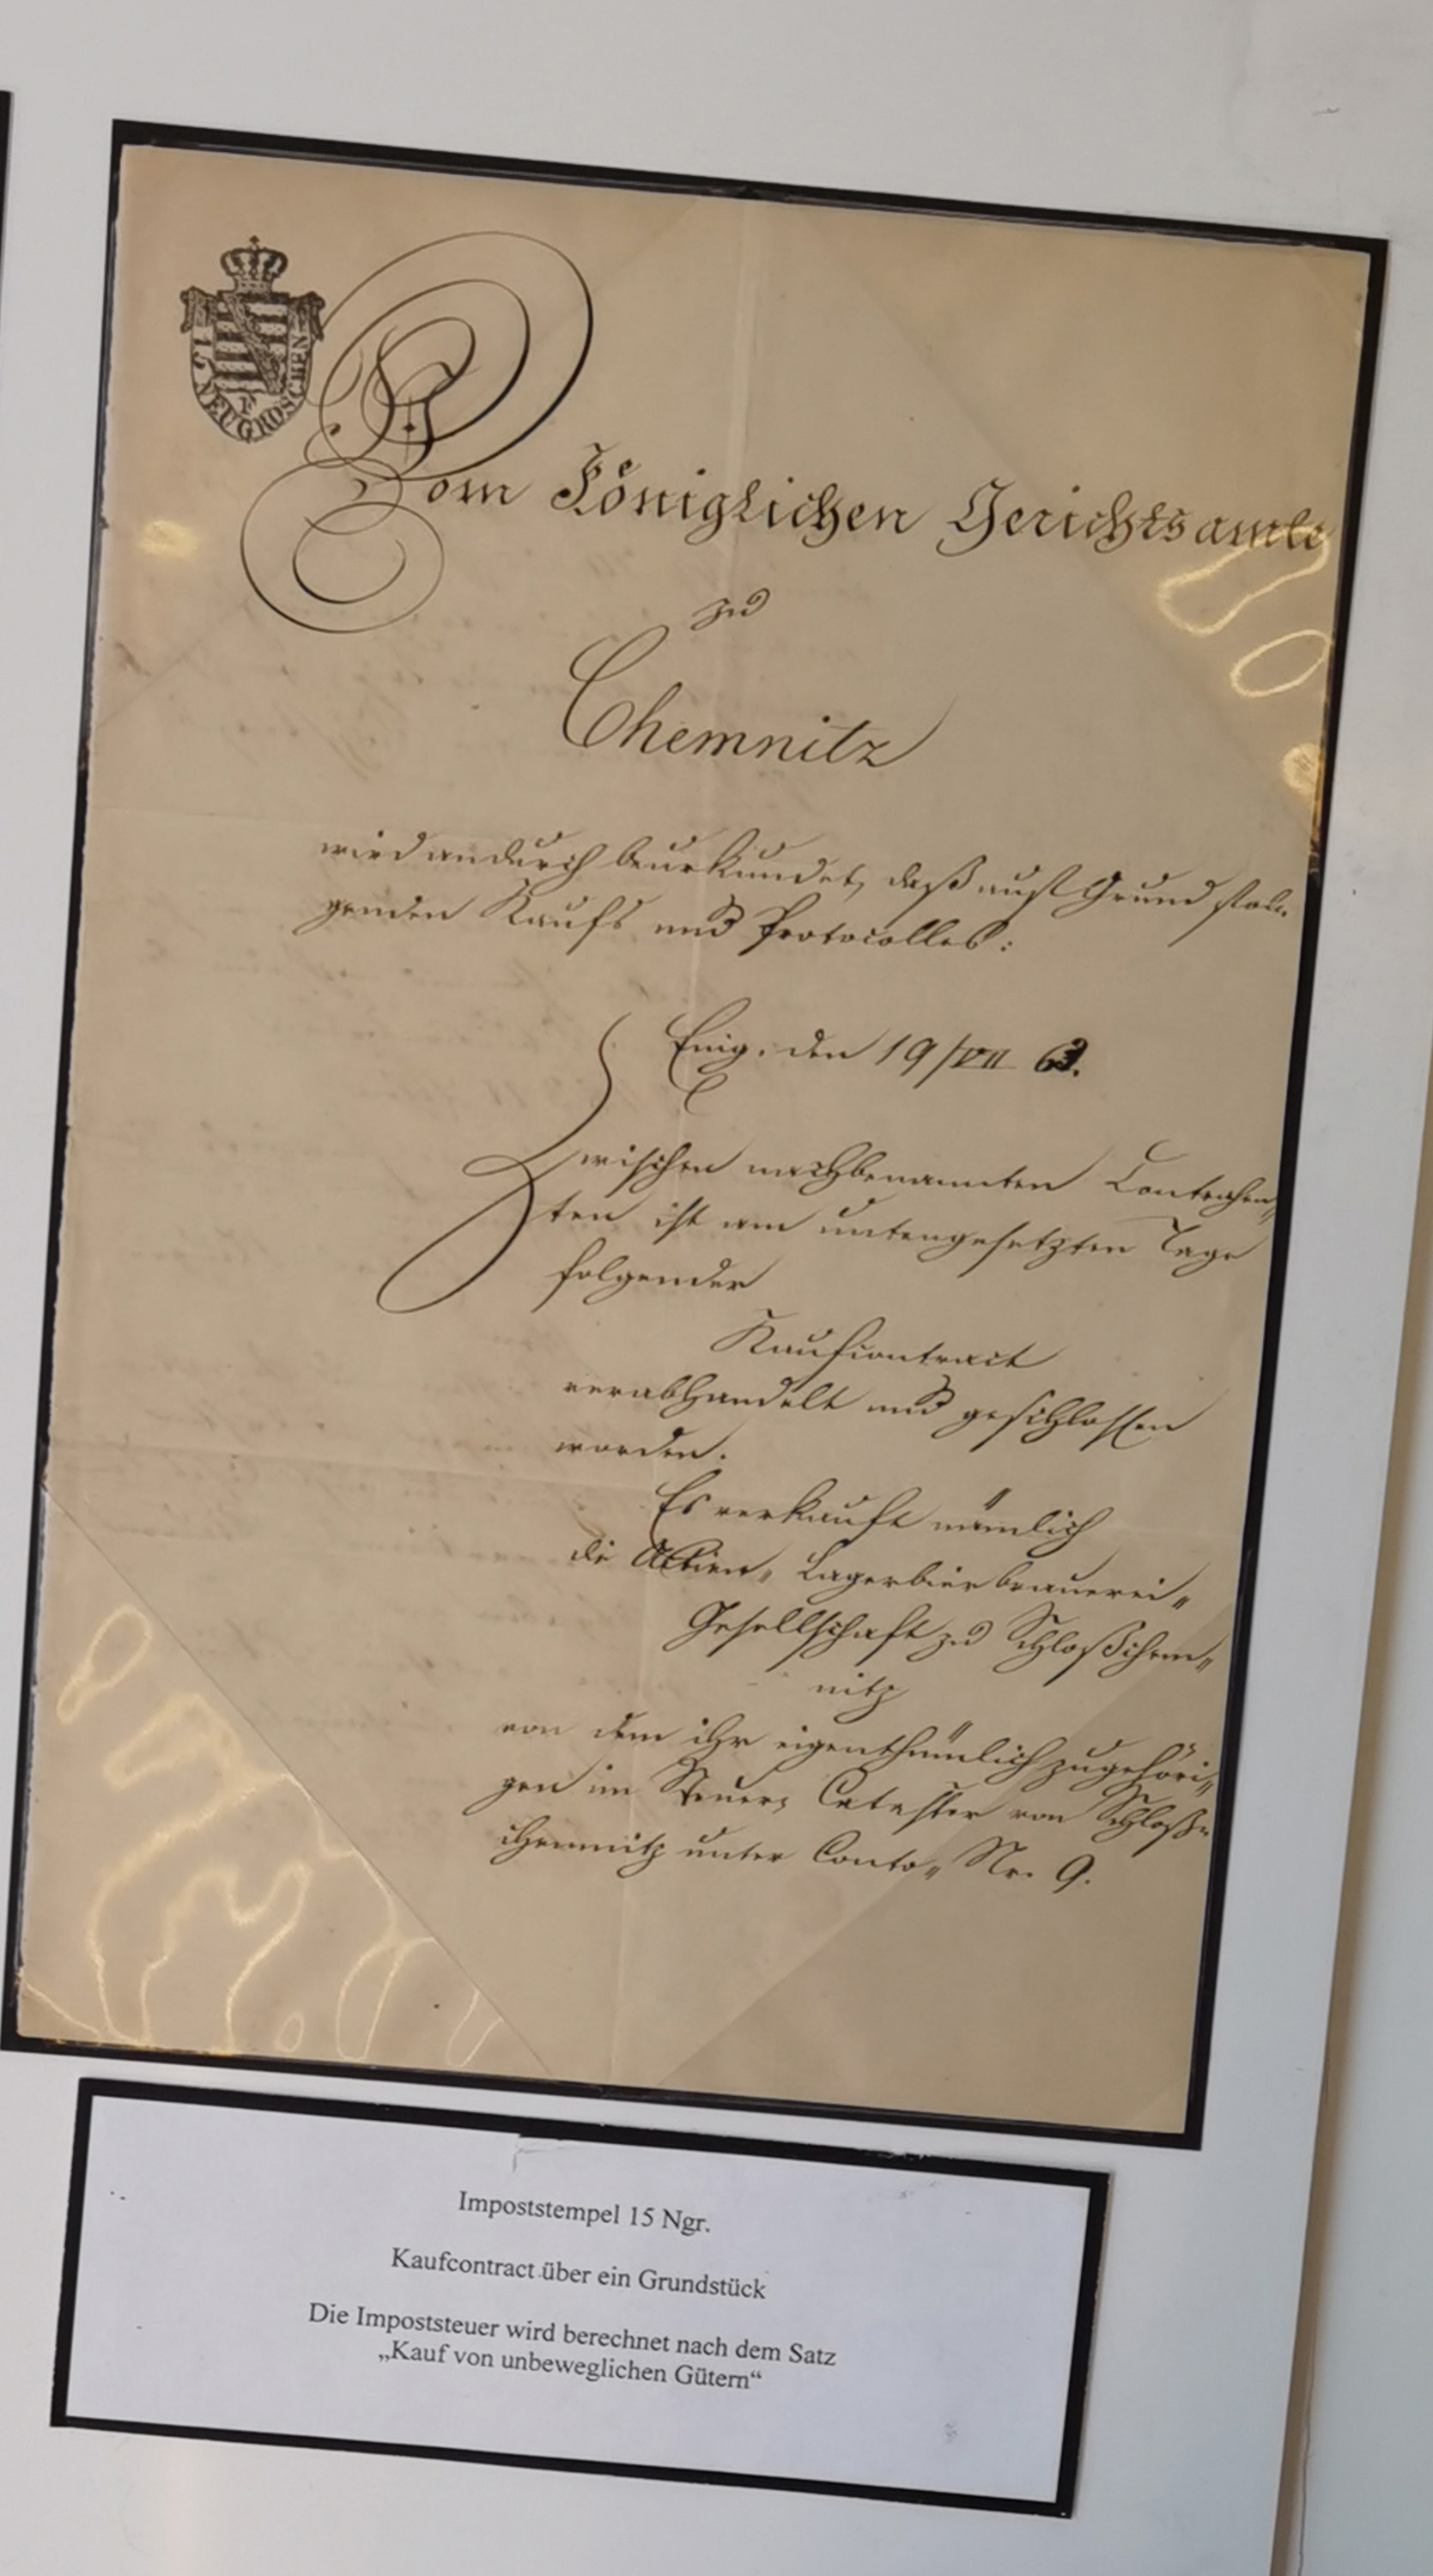 15
NEUGROSCHEN
Vom Königlichen Gerichtsamte
zu
Chemnitz
wird andurch beurkundet, daß auf Grund
genden Kaufs und Protocolles:
Eing. den 19/VII 63.
Zwischen nachbenannten Contrahen„
ten ist am untengesetzten Tage
folgender
Kaufcontract
verabhandelt und geschlossen
worden.
Es verkauft nämlich
die Actien„ Lagerbierbrauerei„
Gesellschaft zu Schloßchem„
nitz
von dem ihr eigenthümlich zugehöri„
gen im Steuer„ Cataster von Schloß„
chemnitz unter Conto„ Nr. 9.
Impoststempel 15 Ngr.
Kaufcontract über ein Grundstück
Die Impoststeuer wird berechnet nach dem Satz
„Kauf von unbeweglichen Gütern“